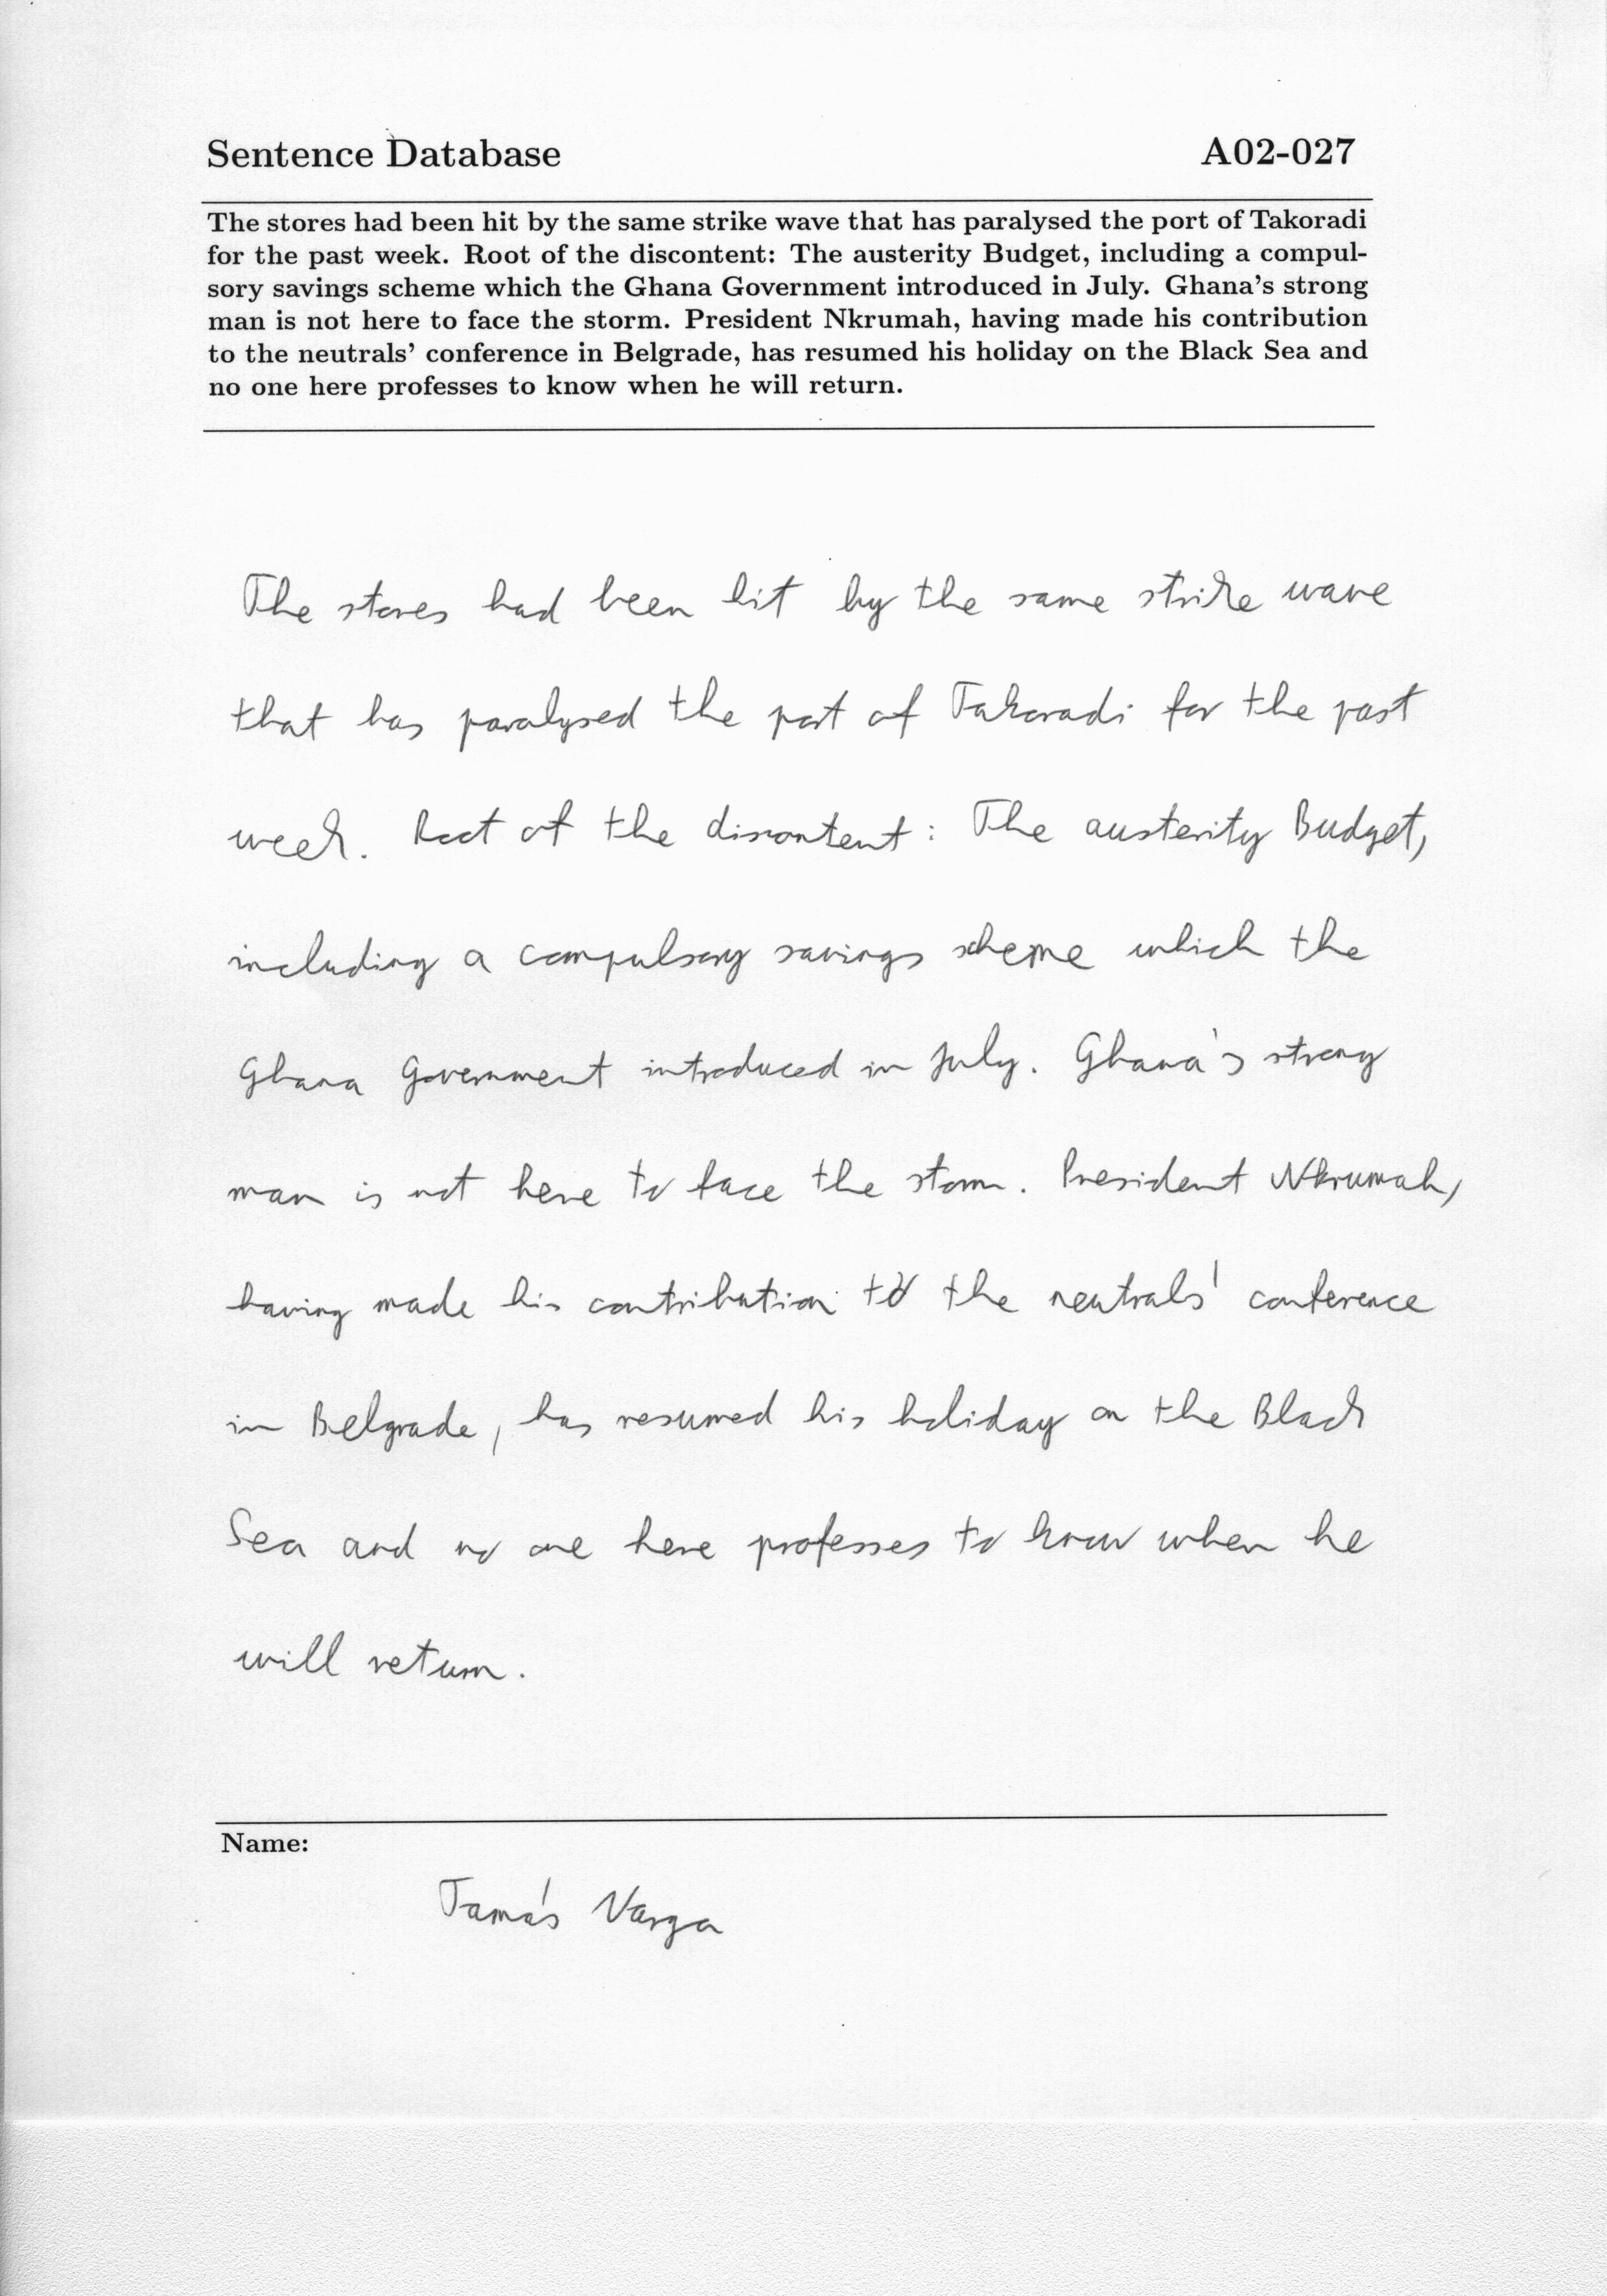 Sentence Database A02-027
The stores had been hit by the same strike wave that has paralysed the port of Takoradi
for the past week. Root of the discontent: The austerity Budget, including a compul-
sory savings scheme which the Ghana Government introduced in July. Ghana's strong
man is not here to face the storm. President Nkrumah, having made his contribution
to the neutrals' conference in Belgrade, has resumed his holiday on the Black Sea and
no one here professes to know when he will return.
The stores had been hit by the same strike wave
that has paralysed the port of Takoradi for the past
week. Root of the discontent: The austerity Budget,
including a compulsory savings scheme which the
Ghana Government introduced in July. Ghana's strong
man is not here to face the storm. President Nkrumah,
having made his contribution to the neutrals' conference
in Belgrade, has resumed his holiday on the Black
Sea and no one here professes to know when he
will return.
Name:
Tamás Varga